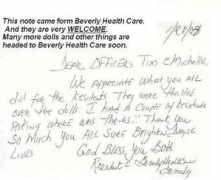 This note came form Beverly Health Care.
And they are very WELCOME.
Many more dolls and other things are
headed to Beverly Health Care soon.
Dear Officers Tim & Michelle,
We Appreciate what you all
did for the Residents They were thrilled
over the dolls I had a Couple of Residents
Asking where was theirs." Thank you
So Much you All Sure Brighten Some
Lives
God Bless you Both
Resident &
Family